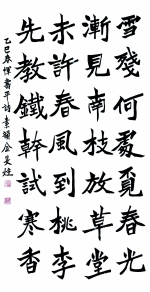 雪殘何處覓春光
漸見南枝放草堂
未許春風到桃李
先教鐵幹試寒香
乙巳春惲壽平詩